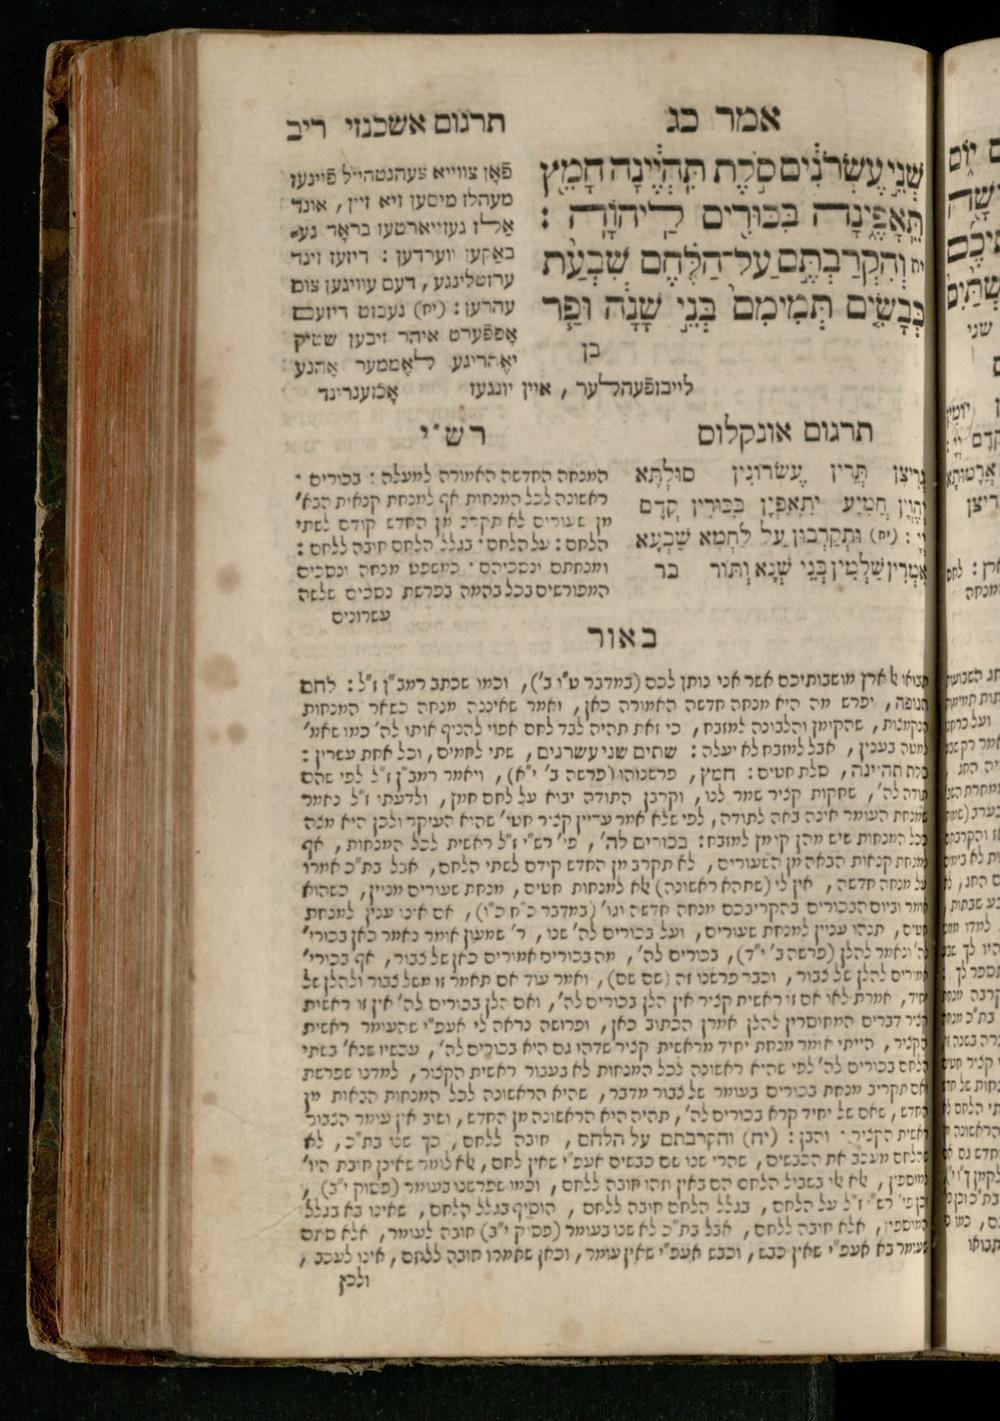 אמר כג
תרגום אשכנזי ריב
שְׁנֵי עֶשְׂרֹנִים סֹלֶת תִּהְיֶינָה חָמֵץ
תֵּאָפֶינָה בִּכּוּרִים לַיהֹוָה :
יח וְהִקְרַבְתֶּם עַל־הַלֶּחֶם שִׁבְעַת
כְּבָשִׂים תְּמִימִם בְּנֵי שָׁנָה וּפַר
בן
פֿאָן צווייא צעהנטהייל פֿיינעז
מעהלז מיסען זיא זיין, אונד
אַלז געזייארטעז בראָד גע־
באַקען ווערדען : דיזעז זינד
ערזטלינגע, דעם עוויגען צום
עהרען : (יח) נעבזט דיזעם
אָפּפֿערט איהר זיבען שטיק
יאָהריגע לאֶממער אָהנע
לייבזפֿעהלער, איין יונגעז
אָכזענרינד
תרגום אונקלוס
גְרִיצַן תְּרֵין עֶשְׂרוֹנִין סוּלְתָּא
יֶהֱוְיָן חֲמִיעַ יִתְאַפְיָן בִּכּוּרִין קֳדָם
יְיָ : (יח) וּתְקַרְבוּן עַל לַחְמָא שַׁבְעָא
אִמְּרִין שַׁלְמִין בְּנֵי שְׁנָא וְתוֹר בר
רש"י
המנחה החדשה האמורה למעלה : בכורים ·
ראשונה לכל המנחות אף למנחת קנאות הבא'
מן שעורים לא תקרב מן החדש קודם לשתי
הלחם : על הלחם · בגלל הלחם חובה ללחם :
ומנחתם ונסכיהם · כמשפט מנחה ונסכים
המפורשים בכל בהמה בפרשת נסכים שלשה
עשרונים
באור
תבואו אל ארץ מושבותיכם אשר אני נותן לכם (במדבר ט"ו ב'), וכמו שכתב רמב"ן ז"ל : לחם
תנופה, יפרש מה היא מנחה חדשה האמורה כאן, ואמר שאיננה מנחה כשאר המנחות
הנקמצות, שהקומץ והלבונה למזבח, כי זאת תהיה לבד לחם אפוי להניף אותו לה' כמו שאמ'
למטה בענין, אבל למזבח לא יעלה : שתים שני עשרנים, שתי לחמים, וכל אחת עשרין :
סלת תהיינה, סלת חטים : חמץ, פרשנוהו (פרשה ב' י"א), ויאמר רמב"ן ז"ל לפי שהם
תודה לה', שחקות קציר שמר לנו, וקרבן התודה יבוא על לחם חמץ, ולדעתו ז"ל נאמר
שמנחת העומר אינה באה לתודה, לפי שלא אמר עדיין קציר חטי' שהיא העיקר ולכן היא מצה
ככל המנחות שיש מהן קומץ למזבח : בכורים לה', פי' רש"י ז"ל ראשית לכל המנחות, אף
למנחת קנאות הבאה מן השעורים, לא תקרב מן החדש קודם לשתי הלחם, אבל בת"כ אמרו
על מנחה חדשה, אין לי (שתהא ראשונה) אלא למנחות חטים, מנחת שעורים מניין, כשהוא
אומר וביום הבכורים בהקריבכם מנחה חדשה וגו' (במדבר כ"ח כ"ו), אם אינו ענין למנחת
חטים, תנהו עניין למנחת שעורים, ועל בכורים לה' שנו, ר' שמעון אומר נאמר כאן בכורי'
לה' ונאמר להלן (פרשה ב' י"ד), בכורים לה', מה בכורים אמורים כאן של צבור, אף בכורי'
אמורים להלן של צבור, וכבר פרשנו זה (שם שם), ואמר עוד אם תאמר זו משל צבור ולהלן של
יחיד, אמרת לאו אם זו ראשית קציר אין הלן בכורים לה', ואם הלן בכורים לה' אין זו ראשית
קציר דברים המחוסרין להלן אמרן הכתוב כאן, ופרושה נראה לי אעפ"י שהעומר ראשית
הקציר, הייתי אומר מנחת יחיד מראשית קציר שדהו גם היא בכורים לה', עכשיו שנא' בשתי
הלחם בכורים לה' לפי שהיא ראשונה לכל המנחות לא בעבור ראשית הקצור, למדנו שפרשת
ואם תקריב מנחת בכורים בעומר של צבור מדבר, שהיא הראשונה לכל המנחות הבאות מן
החדש, שאם של יחיד קרא בכורים לה', תהיה היא הראשונה מן החדש, ושוב אין עומר הצבור
ראשית הקציר · והבן : (יח) והקרבתם על הלחם, חובה ללחם, כך שנו בת"כ, לא
שהלחם מעכב את הכבשים, שהרי שנו שם כבשים אעפ"י שאין לחם, אלא לומר שאינן חובת היו'
כמוספין, אלא אלו בשביל הלחם הם באין וזהו חובה ללחם, וכמו שפרשנו בעומר (פסוק י"ב),
וכן פי' רש"י ז"ל על הלחם, בגלל הלחם חובה ללחם, הוסיף בגלל הלחם, שאינו בא בגלל
המוספין, אלא חובה ללחם, אבל בת"כ לא שנו בעומר (פסוק י"ב) חובה לעומר, אלא סתם
שעומר בא אעפ"י שאין כבש, וכבש אעפ"י שאין עומר, וכאן שאמרו חובה ללחם, אינו לעכב,
ולכן